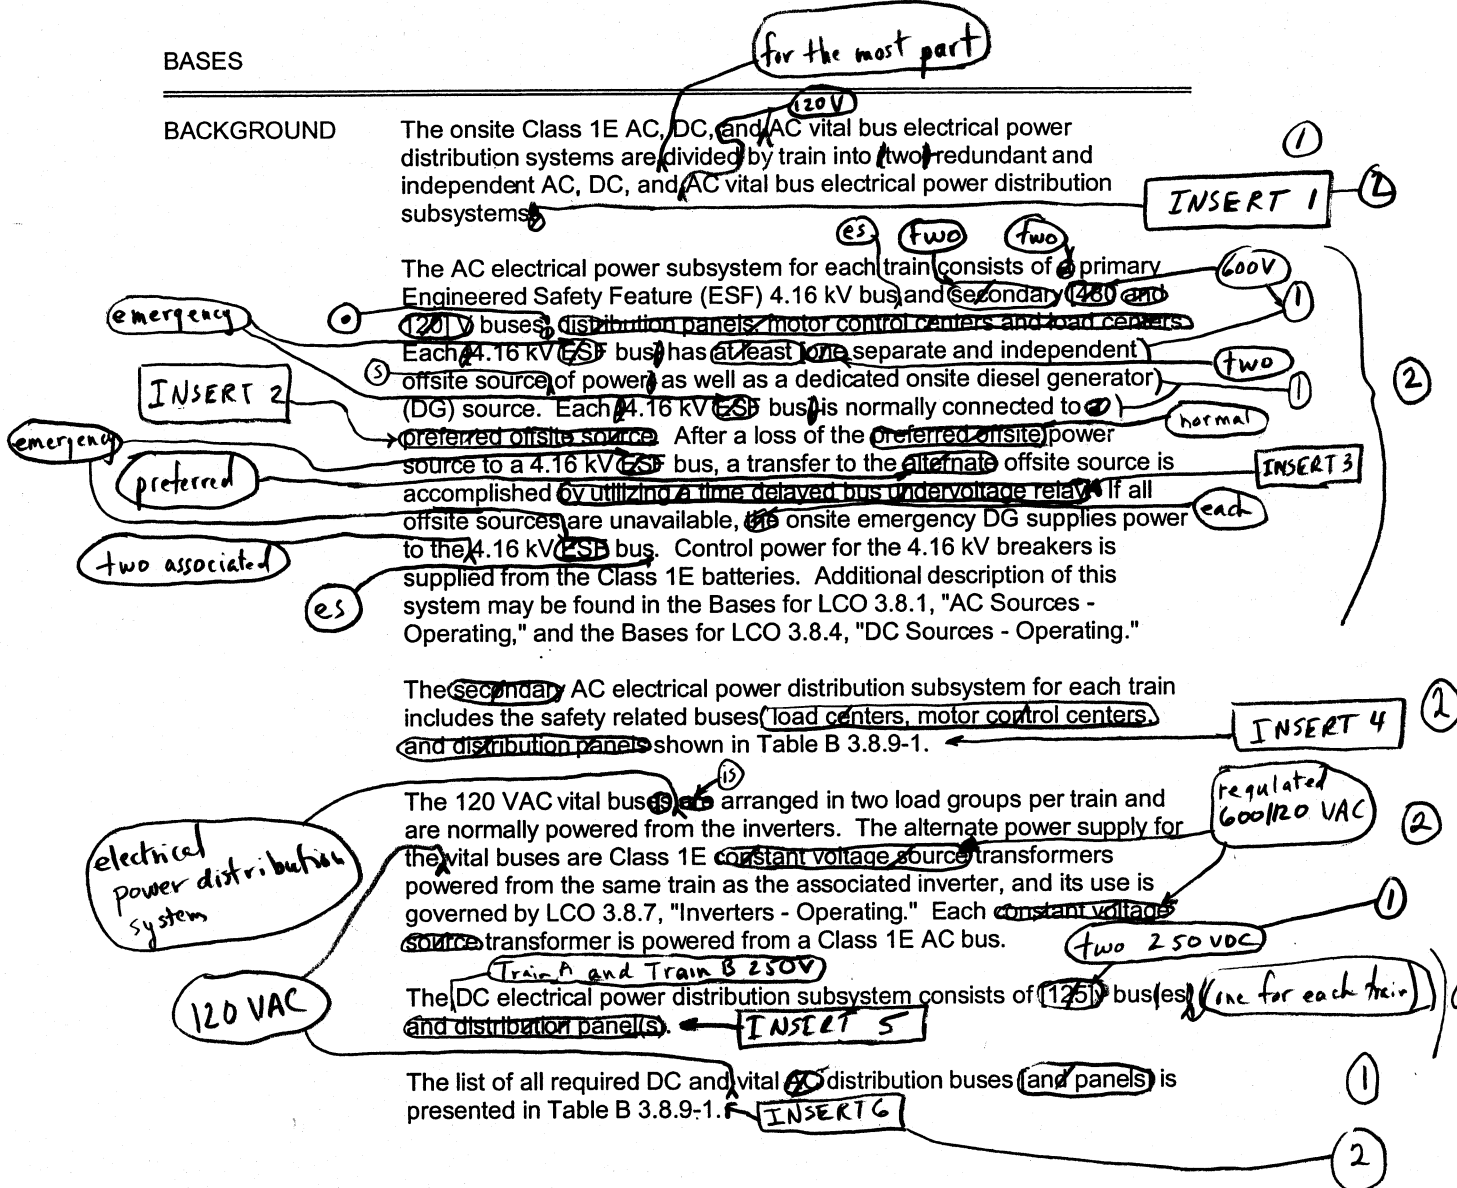 for the most part
BASES
120V
BACKGROUND The onsite Class 1E AC, DC, and AC vital bus electrical power
distribution systems are divided by train into [two] redundant and
independent AC, DC, and AC vital bus electrical power distribution
subsystems
1
INSERT 1 2
es two two
The AC electrical power subsystem for each train consists of a primary
600V
Engineered Safety Feature (ESF) 4.16 kV bus and secondary [480 and
1
emergency
120] V buses, distribution panels, motor control centers and load centers.
Each [4.16 kV ESF bus] has at least [one separate and independent
two
s
offsite source of power] as well as a dedicated onsite diesel generator
1
INSERT 2
(DG) source. Each [4.16 kV ESF bus] is normally connected to a
2
normal
preferred offsite source. After a loss of the preferred offsite power
emergency
source to a 4.16 kV ESF bus, a transfer to the alternate offsite source is
INSERT 3
preferred
accomplished by utilizing a time delayed bus undervoltage relay. If all
offsite sources are unavailable, the onsite emergency DG supplies power
each
to the 4.16 kV ESF bus. Control power for the 4.16 kV breakers is
two associated
supplied from the Class 1E batteries. Additional description of this
es
system may be found in the Bases for LCO 3.8.1, "AC Sources -
Operating," and the Bases for LCO 3.8.4, "DC Sources - Operating."
The secondary AC electrical power distribution subsystem for each train
includes the safety related buses, load centers, motor control centers,
and distribution panels shown in Table B 3.8.9-1.
INSERT 4 2
is
The 120 VAC vital buses are arranged in two load groups per train and
regulated
600/120 VAC
2
are normally powered from the inverters. The alternate power supply for
the vital buses are Class 1E constant voltage source transformers
electrical
power distribution
system
powered from the same train as the associated inverter, and its use is
governed by LCO 3.8.7, "Inverters - Operating." Each constant voltage
1
source transformer is powered from a Class 1E AC bus.
two 250 VDC
Train A and Train B 250V
The DC electrical power distribution subsystem consists of [125] V bus(es)
(one for each train)
120 VAC
and distribution panel(s).
INSERT 5
The list of all required DC and vital AC distribution buses [and panels] is
1
presented in Table B 3.8.9-1.
INSERT 6
2